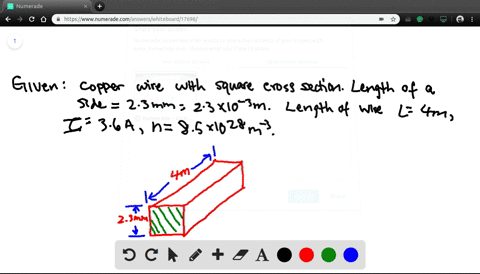 Numerade
https://www.numerade.com/answers/whiteboard/17698/
1
Given: Copper wire with square cross section. Length of a
side = 2.3mm = 2.3×10⁻³m. Length of wire L = 4m,
I = 3.6A, n = 8.5×10²⁸m⁻³.
4m
2.3mm
A